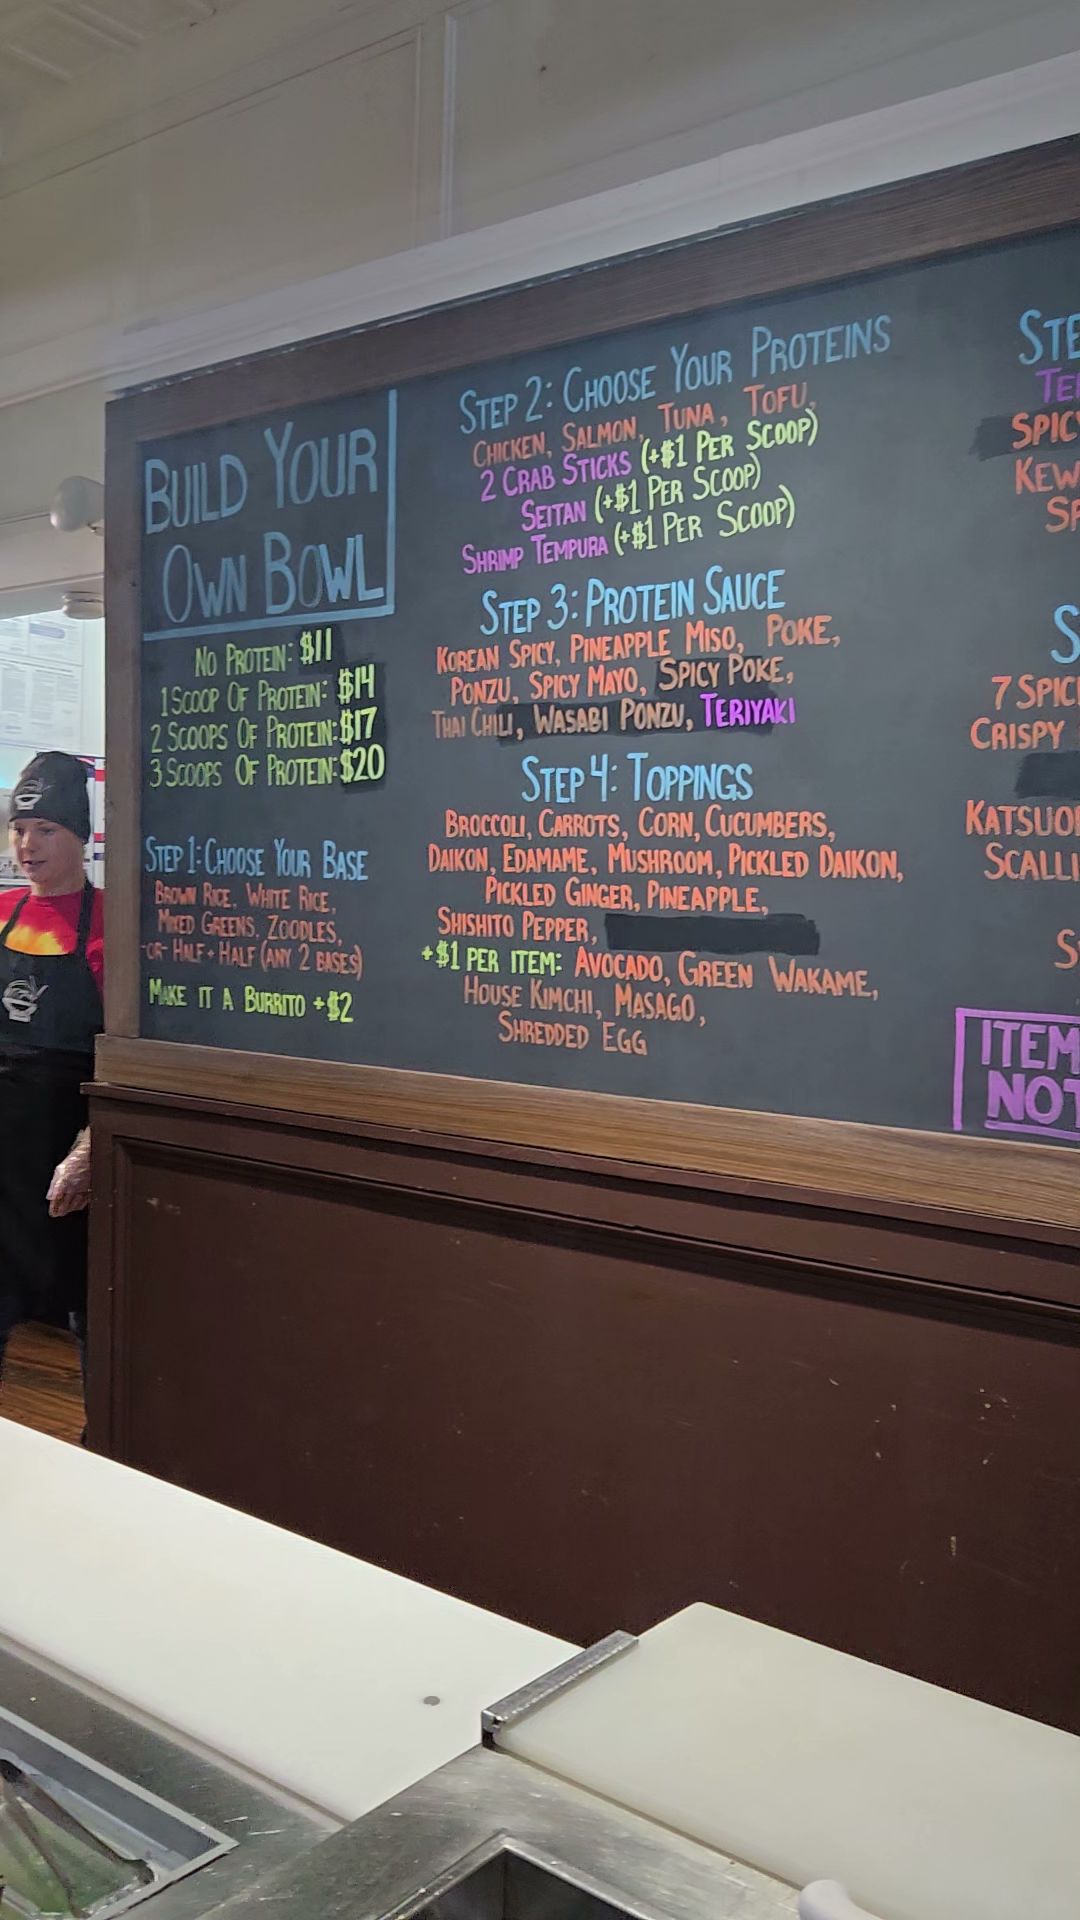 BUILD YOUR
OWN BOWL
NO PROTEIN: $11
1 SCOOP OF PROTEIN: $14
2 SCOOPS OF PROTEIN: $17
3 SCOOPS OF PROTEIN: $20
STEP 1: CHOOSE YOUR BASE
BROWN RICE, WHITE RICE,
MIXED GREENS, ZOODLES,
-OR- HALF + HALF (ANY 2 BASES)
MAKE IT A BURRITO +$2
STEP 2: CHOOSE YOUR PROTEINS
CHICKEN, SALMON, TUNA, TOFU,
2 CRAB STICKS (+$1 PER SCOOP)
SEITAN (+$1 PER SCOOP)
SHRIMP TEMPURA (+$1 PER SCOOP)
STEP 3: PROTEIN SAUCE
KOREAN SPICY, PINEAPPLE MISO, POKE,
PONZU, SPICY MAYO, SPICY POKE,
THAI CHILI, WASABI PONZU, TERIYAKI
STEP 4: TOPPINGS
BROCCOLI, CARROTS, CORN, CUCUMBERS,
DAIKON, EDAMAME, MUSHROOM, PICKLED DAIKON,
PICKLED GINGER, PINEAPPLE,
SHISHITO PEPPER,
+$1 PER ITEM: AVOCADO, GREEN WAKAME,
HOUSE KIMCHI, MASAGO,
SHREDDED EGG
STE
TE
SPICY
KEW
SP
S
7 SPIC
CRISPY
KATSUO
SCALLI
S
ITEM
NOT